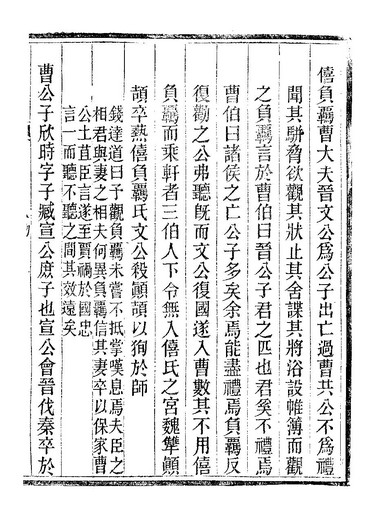 僖負羈曹大夫晉文公爲公子出亡過曹共公不爲禮
聞其駢脅欲觀其狀止其舍諜其將浴設帷簿而觀
之負羈言於曹伯曰晉公子君之匹也君奚不禮焉
曹伯曰諸侯之亡公子多矣余焉能盡禮焉負羈反
復勸之公弗聽旣而文公復國遂入曹數其不用僖
負羈而乘軒者三伯人下令無入僖氏之宮魏犫顚
頡卒熱僖負羈氏文公殺顚頡以狥於師
錢達道曰子觀負羈未嘗不抵掌嘆息焉夫臣之
相君與妻之相夫何異負羈信其妻卒以保家曹
公土苴臣言遂至賈禍於國忠
言一而聽不聽之間其效遠矣
曹公子欣時字子臧宣公庶子也宣公會晉伐秦卒於